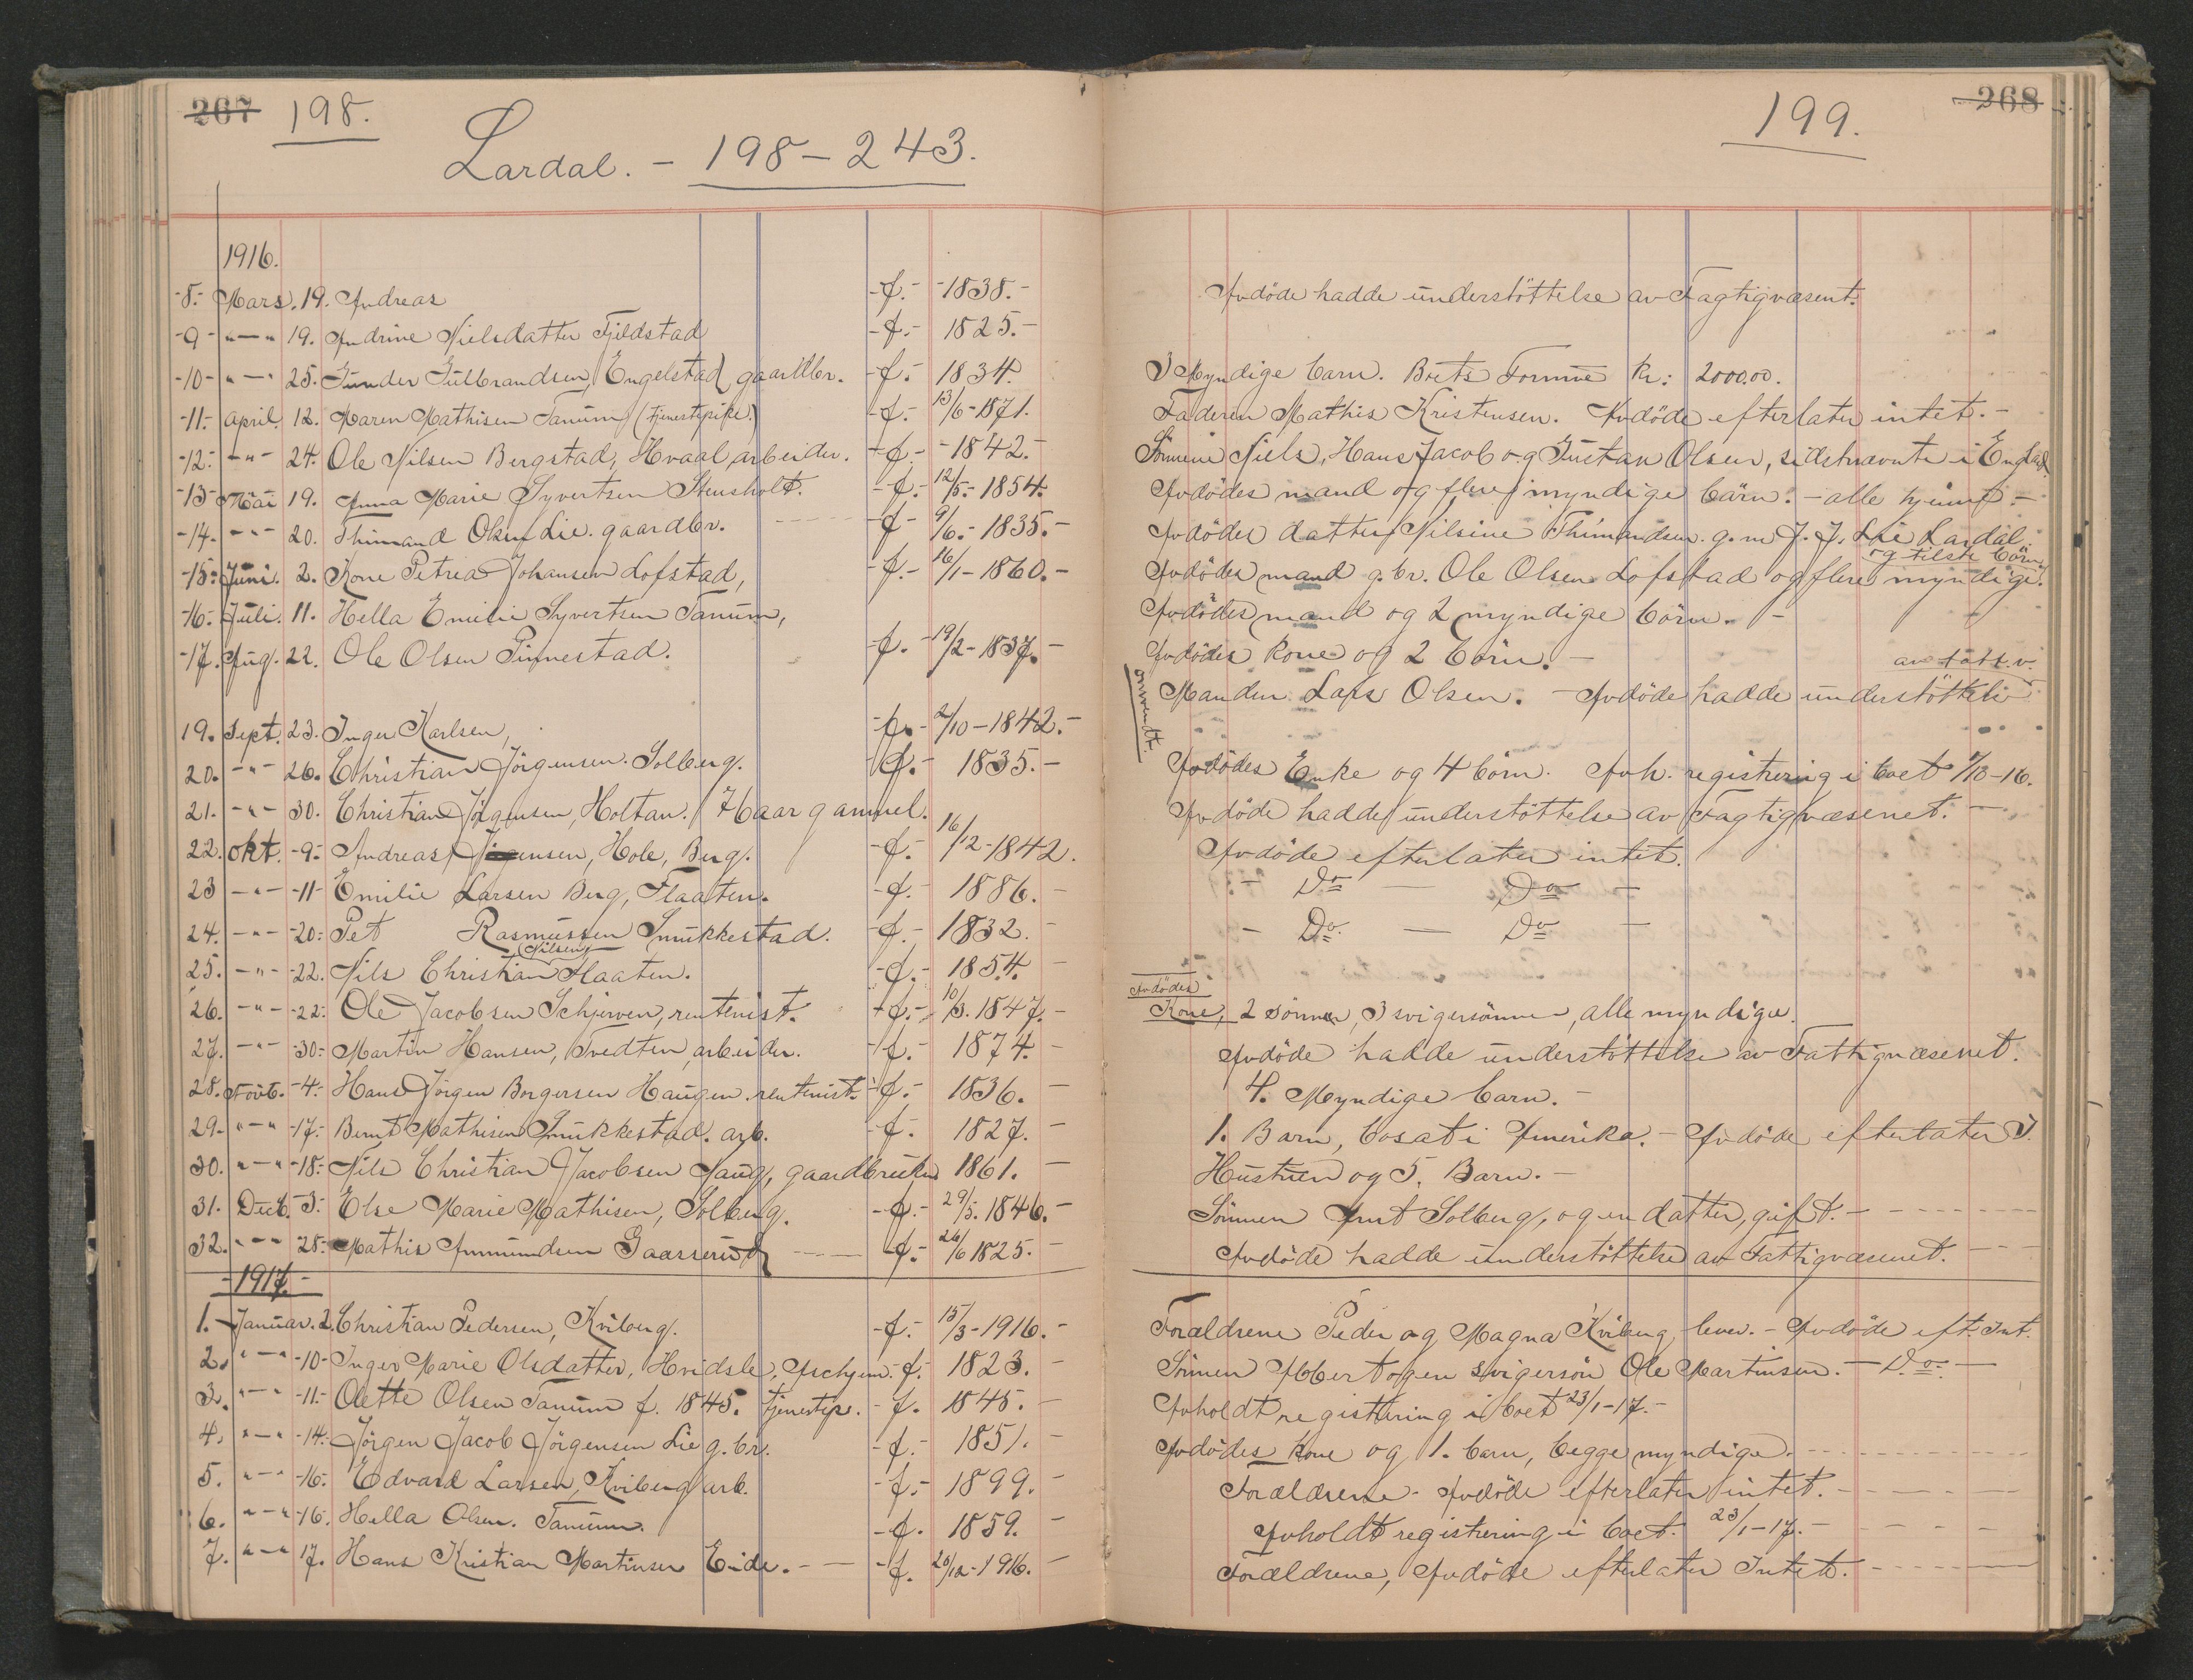 267 198.
Lardal. - 198-243.
1916.
-8.- Mars. 19. Andreas -f.- -1838.-
-9- "—" 19. Andrine Nielsdatter Fjeldstad -f.- 1825.-
-10- "—" 25. Gunder Gulbrandsen, Engelstad, gaardbr. -f.- 1834.
-11- April. 12. Maren Mathisen Tanum (tjenestepike.) -f.- 13/6-1871.
-12.- -"- 24. Ole Nilsen Bergstad, Hvaal, arbeider. -f.- -1842.-
-13- Mai 19. Anna Marie Syvertsen Stensholt. -f.- 12/5.-1854.
-14. -"- 20. Thimand Olsen Lie. gaardbr. -f- 9/6.-1835.-
-15- Juni. 2. Kone Petrea Johansen Lofstad, -f.- 16/1-1860.-
-16.- Juli. 11. Hella Emilie Syvertsen Tanum,
-17. Aug. 22. Ole Olsen Pinnestad. -f.- 19/2-1837.-
19. Sept. 23. Inger Karlsen, -f.- 2/10-1842.-
20. -"- 26. Christian Jörgensen. Solberg. -f.- 1835.-
21. -"- 30. Christian Jörgensen, Holtan. 7 Haar gammel.
22. okt. -9- Andreas Jensen, Hole, Berg. -f.- 16/12-1842.
23 -"- -11- Emilie Larsen Berg, Flaaten. -f.- 1886.-
24. -"- -20.- Pet Rasmussen Smukkestad. -f.- 1832.-
25. -"- -22. Nils Christian Nilsen Flaaten. -f.- 1854.-
26. -"- -22.- Ole Jacobsen Schjerven, rentenist. -f.- 10/3.1847.-
27. -"- -30.- Martin Hansen, Tvedten, arbeider. -f.- 1874.-
28. Novb. -4.- Hans Jörgen Borgersen Haugen. rentenist. -f.- 1836.-
29. "—" -17.- Bernt Mathisen Smukkestad. arb. -f.- 1827.-
30. "—" -18.- Nils Christian Jacobsen Haug, gaardbruker 1861.-
31. Decb. -3.- Else Marie Mathisen, Solberg. -f.- 29/5.1846.-
32. "—" 28.- Mathis Ammundsen Gaasserud -f.- 26/6 1825.-
-1917.-
1. Januar. 2. Christian Pedersen, Kviberg. -f.- 15/3-1916.-
2. "—" -10- Inger Marie Olsdatter, Hvidsle, Aschjem. -f.- 1823.-
3. "—" -11- Olette Olsen Tanum f. 1845. tjenestep. -f. 1845.-
4. "—" -14.- Jörgen Jacob Jörgensen Lie g.br. -f.- 1851.-
5. "—" -16.- Edvard Larsen, Kviberg arb. -f.- 1899.-
6. "—" -16. Hella Olsen. Tanum. -f. 1859.-
7. "—" 17. Hans Kristian Martinsen Eide. -f. 26/12-1916.-
199. 268
Avdöde hadde understöttelse av Fagtigvæsent.
3 Myndige barn. Boets Formue Kr: 2000.00.
Faderen Mathis Kristensen. Avdöde efterlater intet.-
Sönnene Niels, Hans Jacob og Gustav Olsen, sidstnævnte i England
Avdödes mand og flere myndige börn. - alle hjeme -
Avdödes datter Nilsine Thimandsen. g.m J. J. Lie Lardal.
og tilste börn
Avdödes mand g.br. Ole Olsen Lofstad og flere myndige.
Avdödes mand og 2 myndige börn. -
Avdödes kone og 2 börn. -
av fatt.v.
Manden Lars Olsen. - Avdöde hadde understöttelse
omvendt.
Avdödes Enke og 4 börn. Avh. registrering i boet 7/10-16.
Avdöde hadde understöttelse av Fagtigvæsenet. -
Avdöde efterlater intet.
- Do — Do -
- Do. — Do -
Avdödes
Kone, 2 sönner, 3 svigersönner, alle myndige.
Avdöde hadde understöttelse av Fattigvæsenet.
4. Myndige barn.-
1. Barn, bosat i Amerika. - Avdöde efterlater I.
Hustru og 5. Barn.-
Sönnen Arnt Solberg, og en datter, gift.-
Avdöde hadde understöttelse av Fattigvæsenet.
Forældrene Peder og Magna Kviberg lever. - Avdöde eft. Int.
Sönnen Albert og en svigersön Ole Martinsen. - Do -
Avholdt registrering i boet 23/1-17.-
Avdödes kone og 1. barn, begge myndige.
Forældrene - Avdöde efterlater intet.
Avholdt registrering i boet. 23/1-17.-
Forældrene, Avdöde efterlater Intet.-